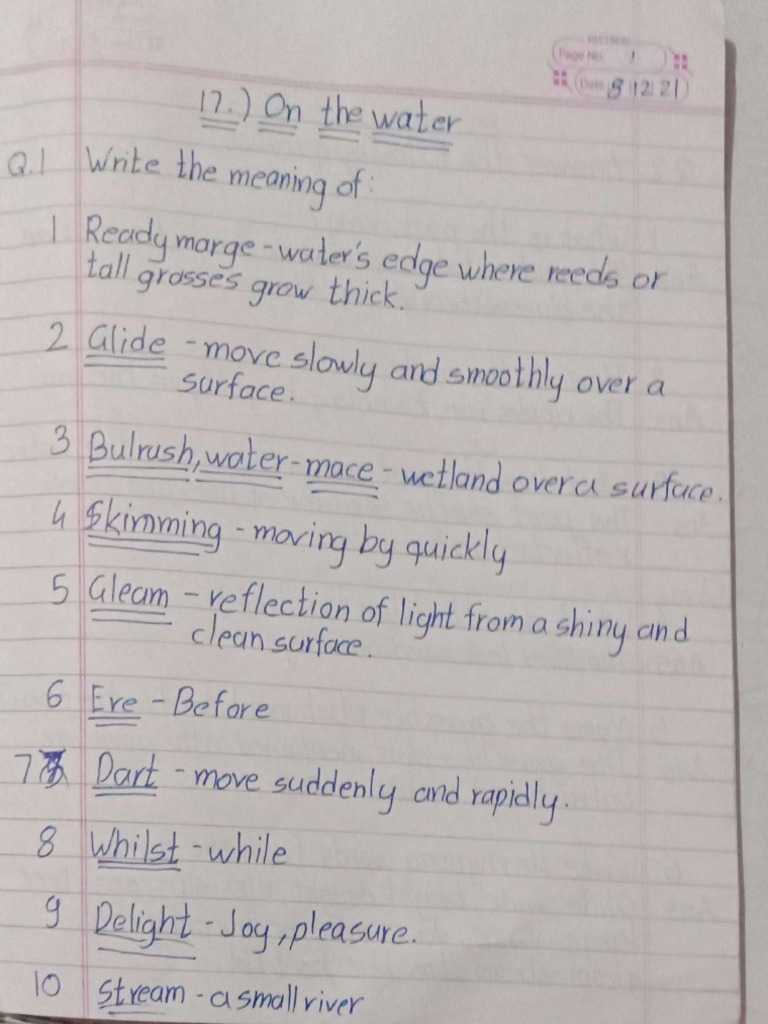 Page No. 1
Date 8 12 21
17.) On the water
Q.1 Write the meaning of:
1 Ready marge - water's edge where reeds or
tall grasses grow thick.
2 Glide - move slowly and smoothly over a
surface.
3 Bulrush, water-mace - wetland over a surface.
4 Skimming - moving by quickly
5 Gleam - reflection of light from a shiny and
clean surface.
6 Ere - Before
7 Dart - move suddenly and rapidly.
8 Whilst - while
9 Delight - Joy, pleasure.
10 Stream - a small river